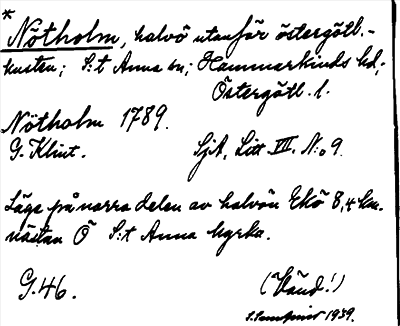 *
Nötholm, halvö utanför östergötl.-
kusten; S:t Anna sn; Hammarkinds hd;
Östergötl. l.
Nötholm 1789.
G. Klint. SjA, Litt III, N:o 9.
Läge på norra delen av halvön Ekö 8,4 km.
nästan Ö S:t Anna kyrka.
G.46. (Vänd!)
1939.